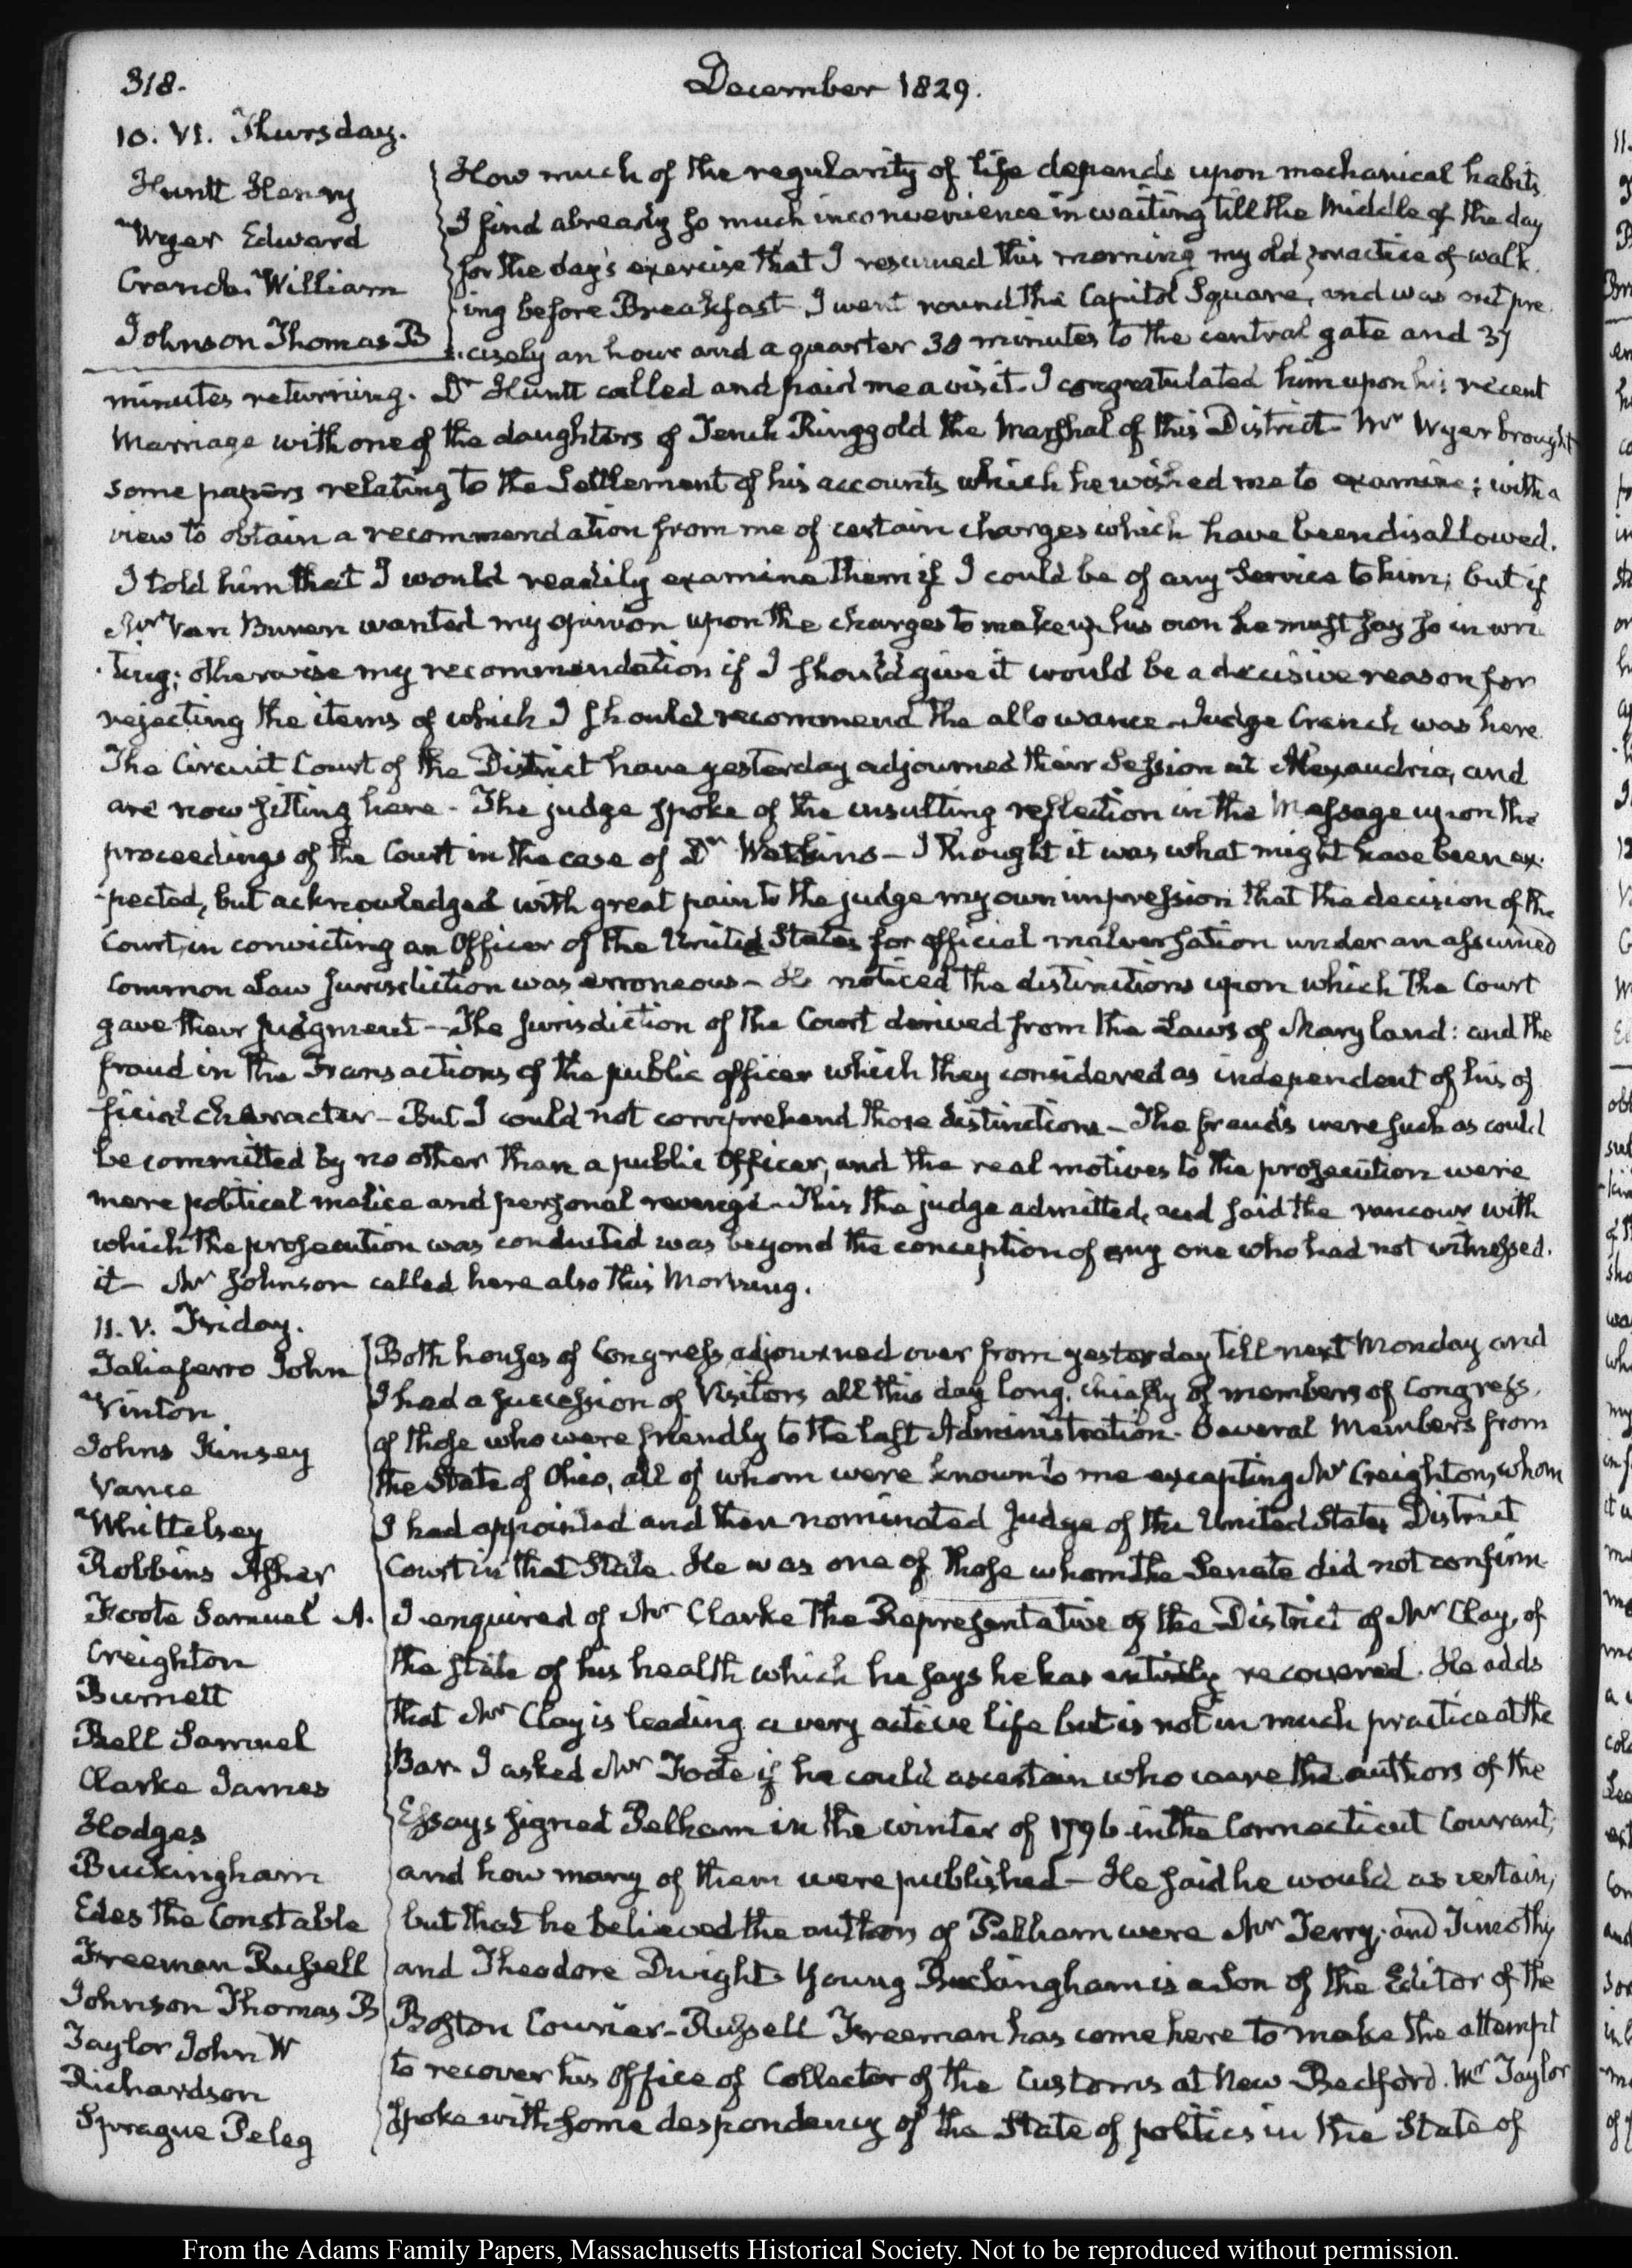 318.
December 1829.
10. VI. Thursday.
Huntt Henry
Wyer Edward
Cranch. William
Johnson Thomas B
How much of the regularity of life depends upon mechanical habits.
I find already so much inconvenience in waiting till the Middle of the day
for the day's exercise that I resumed this morning my old practice of walk
ing before Breakfast. I went round the Capitol Square, and was out pre
cisely an hour and a quarter 38 minutes to the central gate and 37
minutes returning. Dr Huntt called and paid me a visit. I congratulated him upon his recent
Marriage with one of the daughters of Tench Ringgold the Marshal of this District. Mr Wyer brought
some papers relating to the Settlement of his accounts which he wished me to examine; with a
view to obtain a recommendation from me of certain charges which have been disallowed.
I told him that I would readily examine them if I could be of any Service to him; but if
Mr Van Buren wanted my opinion upon the charges to make up his own he must say so in wri
-ting; otherwise my recommendation if I should give it would be a decisive reason for
rejecting the items of which I should recommend the allowance. Judge Cranch was here
The Circuit Court of the District have yesterday adjourned their Session at Alexandria, and
are now sitting here - The judge spoke of the insulting reflection in the Message upon the
proceedings of the Court in the case of Dr Watkins - I thought it was what might have been ex
-pected, but acknowledged with great pain to the judge my own impression that the decision of the
Court, in convicting an Officer of the United States for official malversation under an assumed
Common Law jurisdiction was erroneous - He noticed the distinctions upon which the Court
gave their judgment - The jurisdiction of the Court derived from the Laws of Maryland: and the
fraud in the Transactions of the public officer which they considered as independent of his of
ficial character - But I could not comprehend those distinctions - The frauds were such as could
be committed by no other than a public Officer, and the real motives to the prosecution were
mere political malice and personal revenge - This the judge admitted, and said the rancour with
which the prosecution was conducted was beyond the conception of any one who had not witnessed
it - Mr Johnson called here also this Morning.
11. V. Friday.
Taliaferro John
Vinton
Johns Kinsey
Vance
Whittelsey
Robbins Asher
Foote Samuel A.
Creighton
Burnett
Bell Samuel
Clarke James
Hodges
Buckingham
Edes the Constable
Freeman Russell
Johnson Thomas B
Taylor John W
Richardson
Sprague Peleg
Both houses of Congress adjourned over from yesterday till next Monday and
I had a succession of Visitors all this day long, chiefly of members of Congress,
of those who were friendly to the last Administration. Several Members from
the State of Ohio, all of whom were known to me excepting Mr Creighton, whom
I had appointed and then nominated Judge of the United States District
Court in that State. He was one of those whom the Senate did not confirm
I enquired of Mr Clarke the Representative of the District of Mr Clay, of
the state of his health which he says he has entirely recovered. He adds
that Mr Clay is leading a very active life but is not in much practice at the
Bar. I asked Mr Foote if he could ascertain who were the authors of the
Essays signed Pelham in the winter of 1796 in the Connecticut Courant;
and how many of them were published - He said he would ascertain,
but that he believed the authors of Pelham were Mr Terry, and Timothy
and Theodore Dwight. Young Buckingham is a Son of the Editor of the
Boston Courier - Russell Freeman has come here to make the attempt
to recover his Office of Collector of the Customs at New Bedford. Mr Taylor
spoke with some despondency of the State of politics in the State of
From the Adams Family Papers, Massachusetts Historical Society. Not to be reproduced without permission.